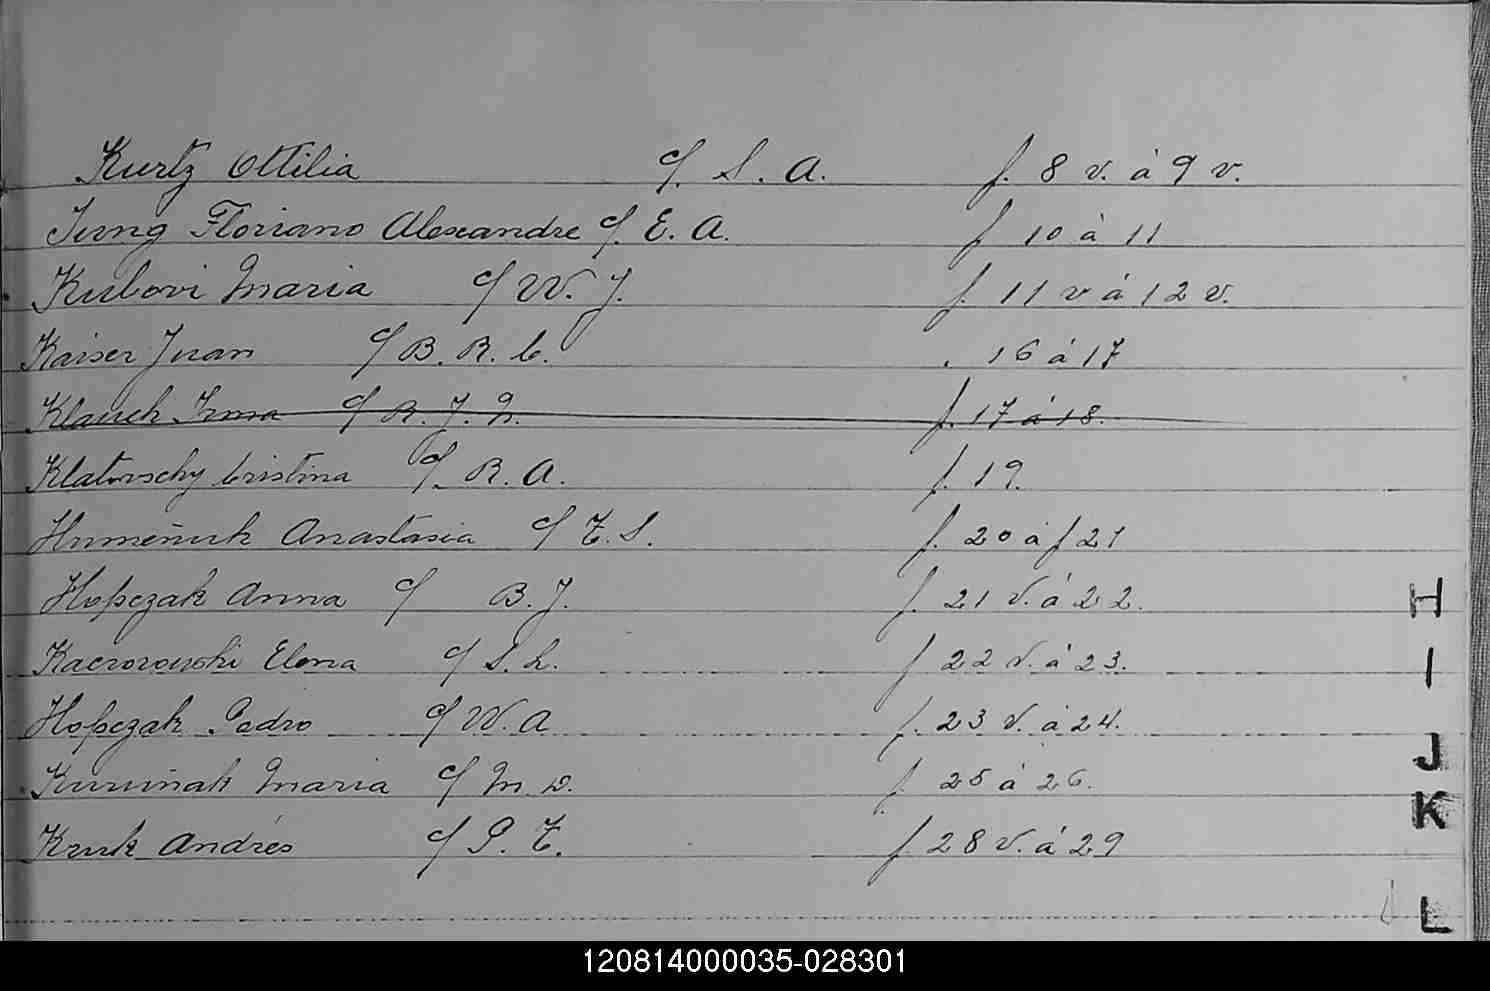 Kurtz Ottilia c/. S. A. f. 8 v. á 9 v.
Jung Floriano Alexandre c/. E. A. f 10 á 11
Kubovi Maria c/ W. J. f. 11 v á 12 v.
Kaiser Juan c/ B. R. C. . 16 á 17
Klauck Irma c/ R. J. N. f. 17 á 18.
Klatovschy Cristina c/. R. A. f. 19.
Humeñuk Anastasia c/ T. S. f. 20 á f 21
Hopczak Anna c/ B. J. f. 21 V. á 22.
Elena c/ S. L. f 22 V. á 23.
Hopczak Pedro c/ W. A f. 23 V. á 24.
Maria c/ M. D. f. 25 á 26.
Kruk Andrés c/ P. T. f 28 V. á 29
H
I
J
K
L
120814000035-028301